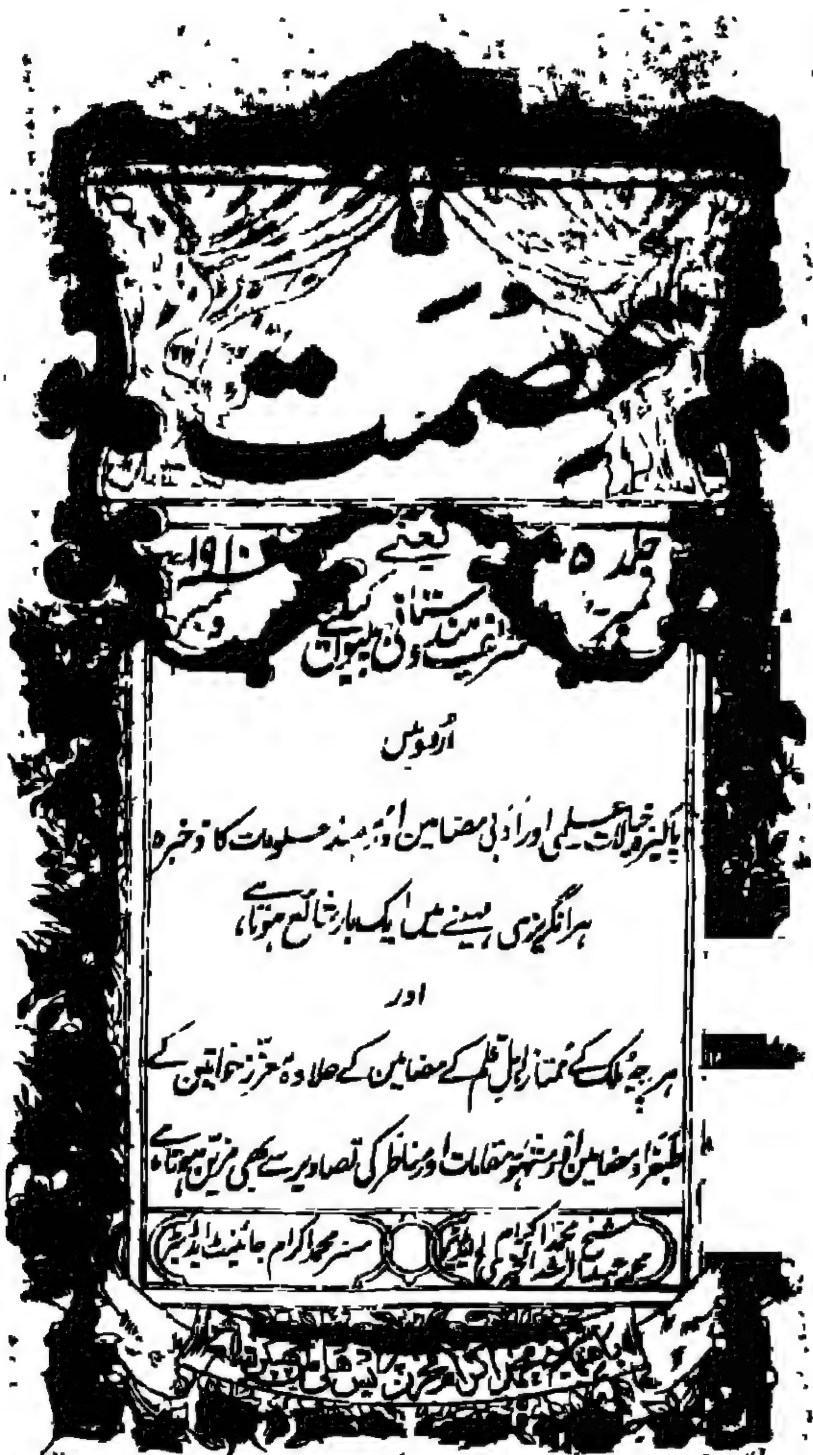 عصمت
جلد ۵ یعنے ۱۹۱۰ء
نمبر
شریف ہندوستانی بیبیوں کیلئے
اُردو میں
پاکیزہ خیالات علیمی اور ادبی مضامین اور معلومات کا ذخیرہ
ہر انگریزی مہینے میں ایک بار شائع ہوتا ہے،
اور
ہر پرچہ ملک کے ممتاز اہلِ قلم کے مضامین کے علاوہ معزز خواتین کے
طبعزاد مضامین اور مشہور مقامات اور مناظر کی تصاویر سے بھی مزین ہوتا ہے
شیخ محمد اکرام
محمد عبدالراشد الخیری ایڈیٹر
مسز محمد اکرام جائینٹ ایڈیٹر